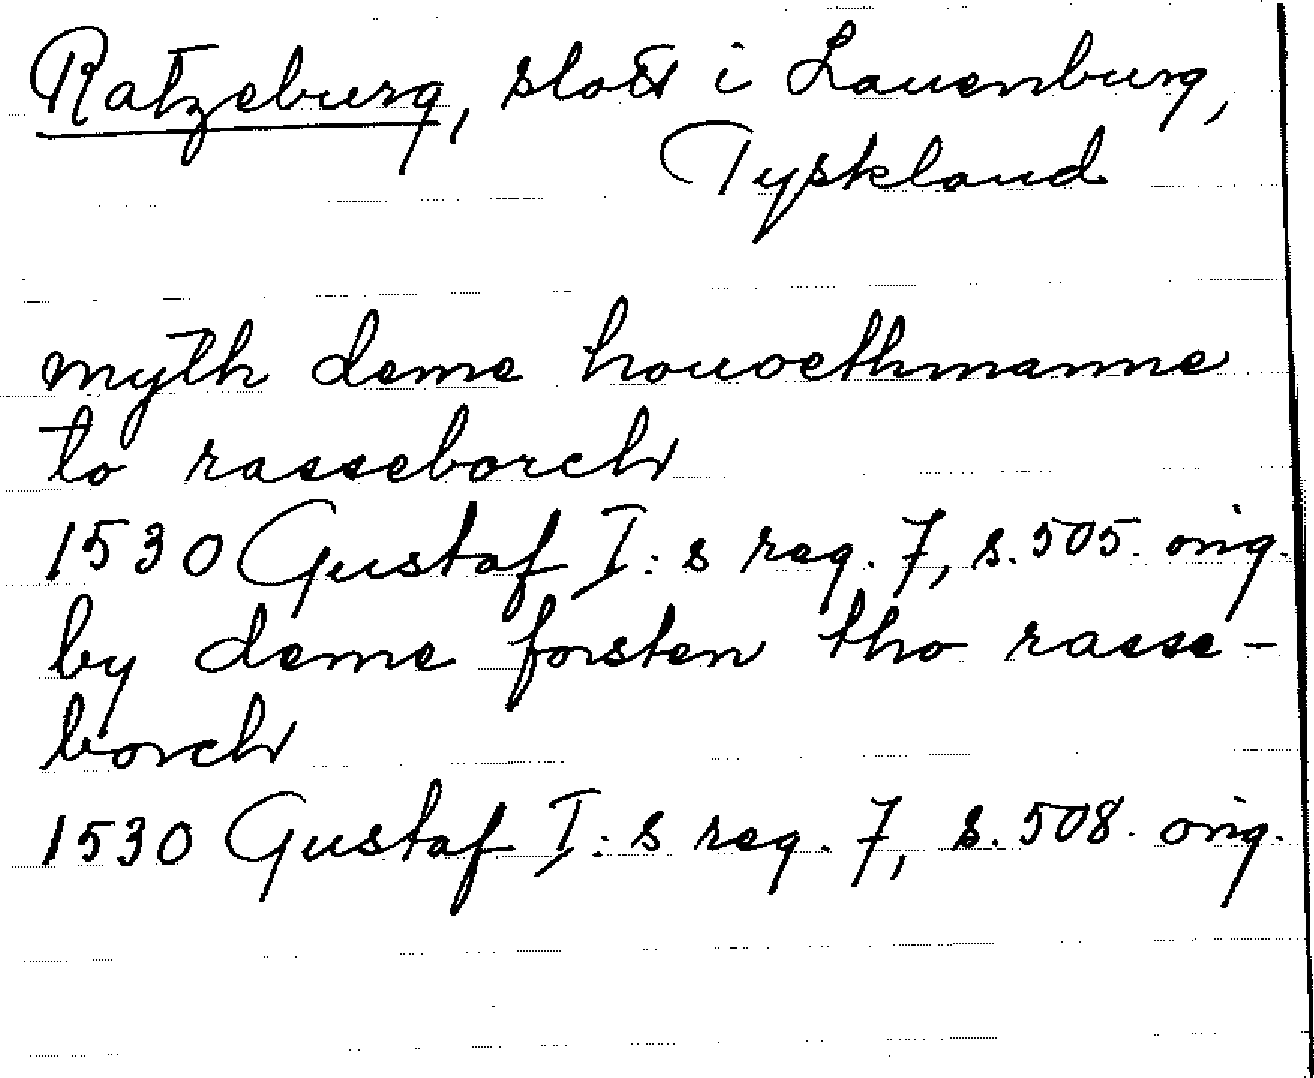 Ratzeburg, slott i Lauenburg,
Tyskland
myth deme houoethmanne
to rasseborch
1530 Gustaf I:s reg. 7, s. 505. orig.
by deme forsten tho rasse-
borch
1530 Gustaf I:s reg. 7, s. 508. orig.